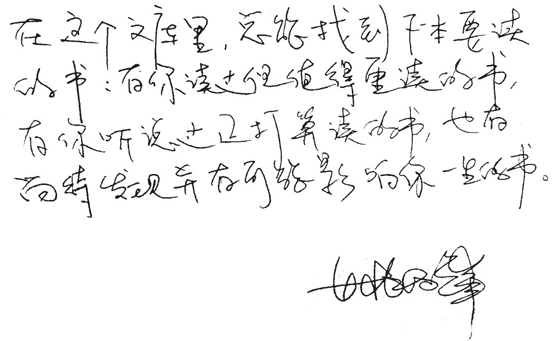 在这个文库里，总能找到下本要读
的书：有你读过但值得重读的书，
有你听说过正打算读的书，也有
尚待发现并有可能影响你一生的书。